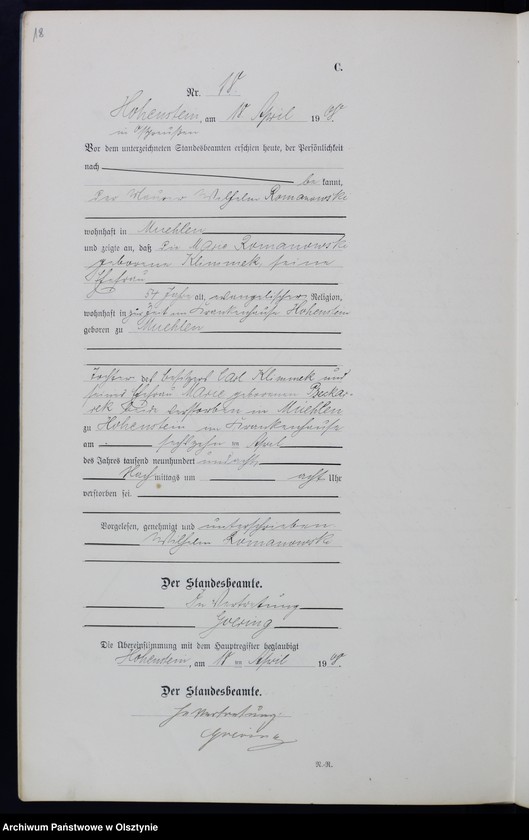 18
C.
Nr. 18
Hohenstein, am 18 April 1908.
in Ostpreußen
Vor dem unterzeichneten Standesbeamten erschien heute, der Persönlichkeit
nach
be kannt,
Der Maurer Wilhelm Romanowski
wohnhaft in Muehlen
und zeigte an, daß die Marie Romanowski
geborene Klimmek, seine
Ehefrau
54 Jahr alt, evangelischer Religion,
wohnhaft zur Zeit im Krankenhause Hohenstein
geboren zu Muehlen
Tochter des Besitzers Klimmek und
seiner Ehefrau Marie geborenen
beide verstorben in Muehlen
zu Hohenstein im Krankenhause
am sechszehn ten April
des Jahres tausend neunhundert und acht
Nach mittags um acht Uhr
verstorben sei.
Vorgelesen, genehmigt und unterschrieben
Wilhelm Romanowski
Der Standesbeamte.
In Vertretung
Goering
Die Übereinstimmung mit dem Hauptregister beglaubigt
Hohenstein, am 18 ten April 1908.
Der Standesbeamte.
In Vertretung
Goering
N.-R.
Archiwum Państwowe w Olsztynie